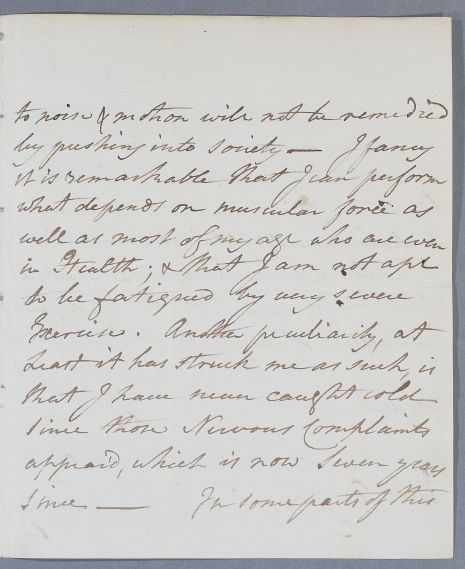 to noise & motion will not be remedied
by pushing into Society — I fancy
it is remarkable that I can perform
what depends on muscular force as
well as most of my age who are even
in Health; & that I am not apt
to be fatigued by very severe
Exercise. Another peculiarity, at
Least it has struck me as such, is
that I have never caught cold
since those Nervous Complaints
appear'd, which is now Seven years
since — In some parts of this